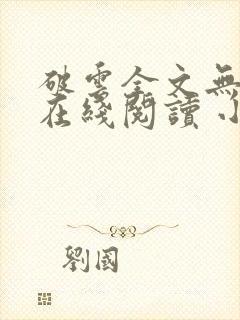 破雲全文無
在綫閱讀 小
劉國